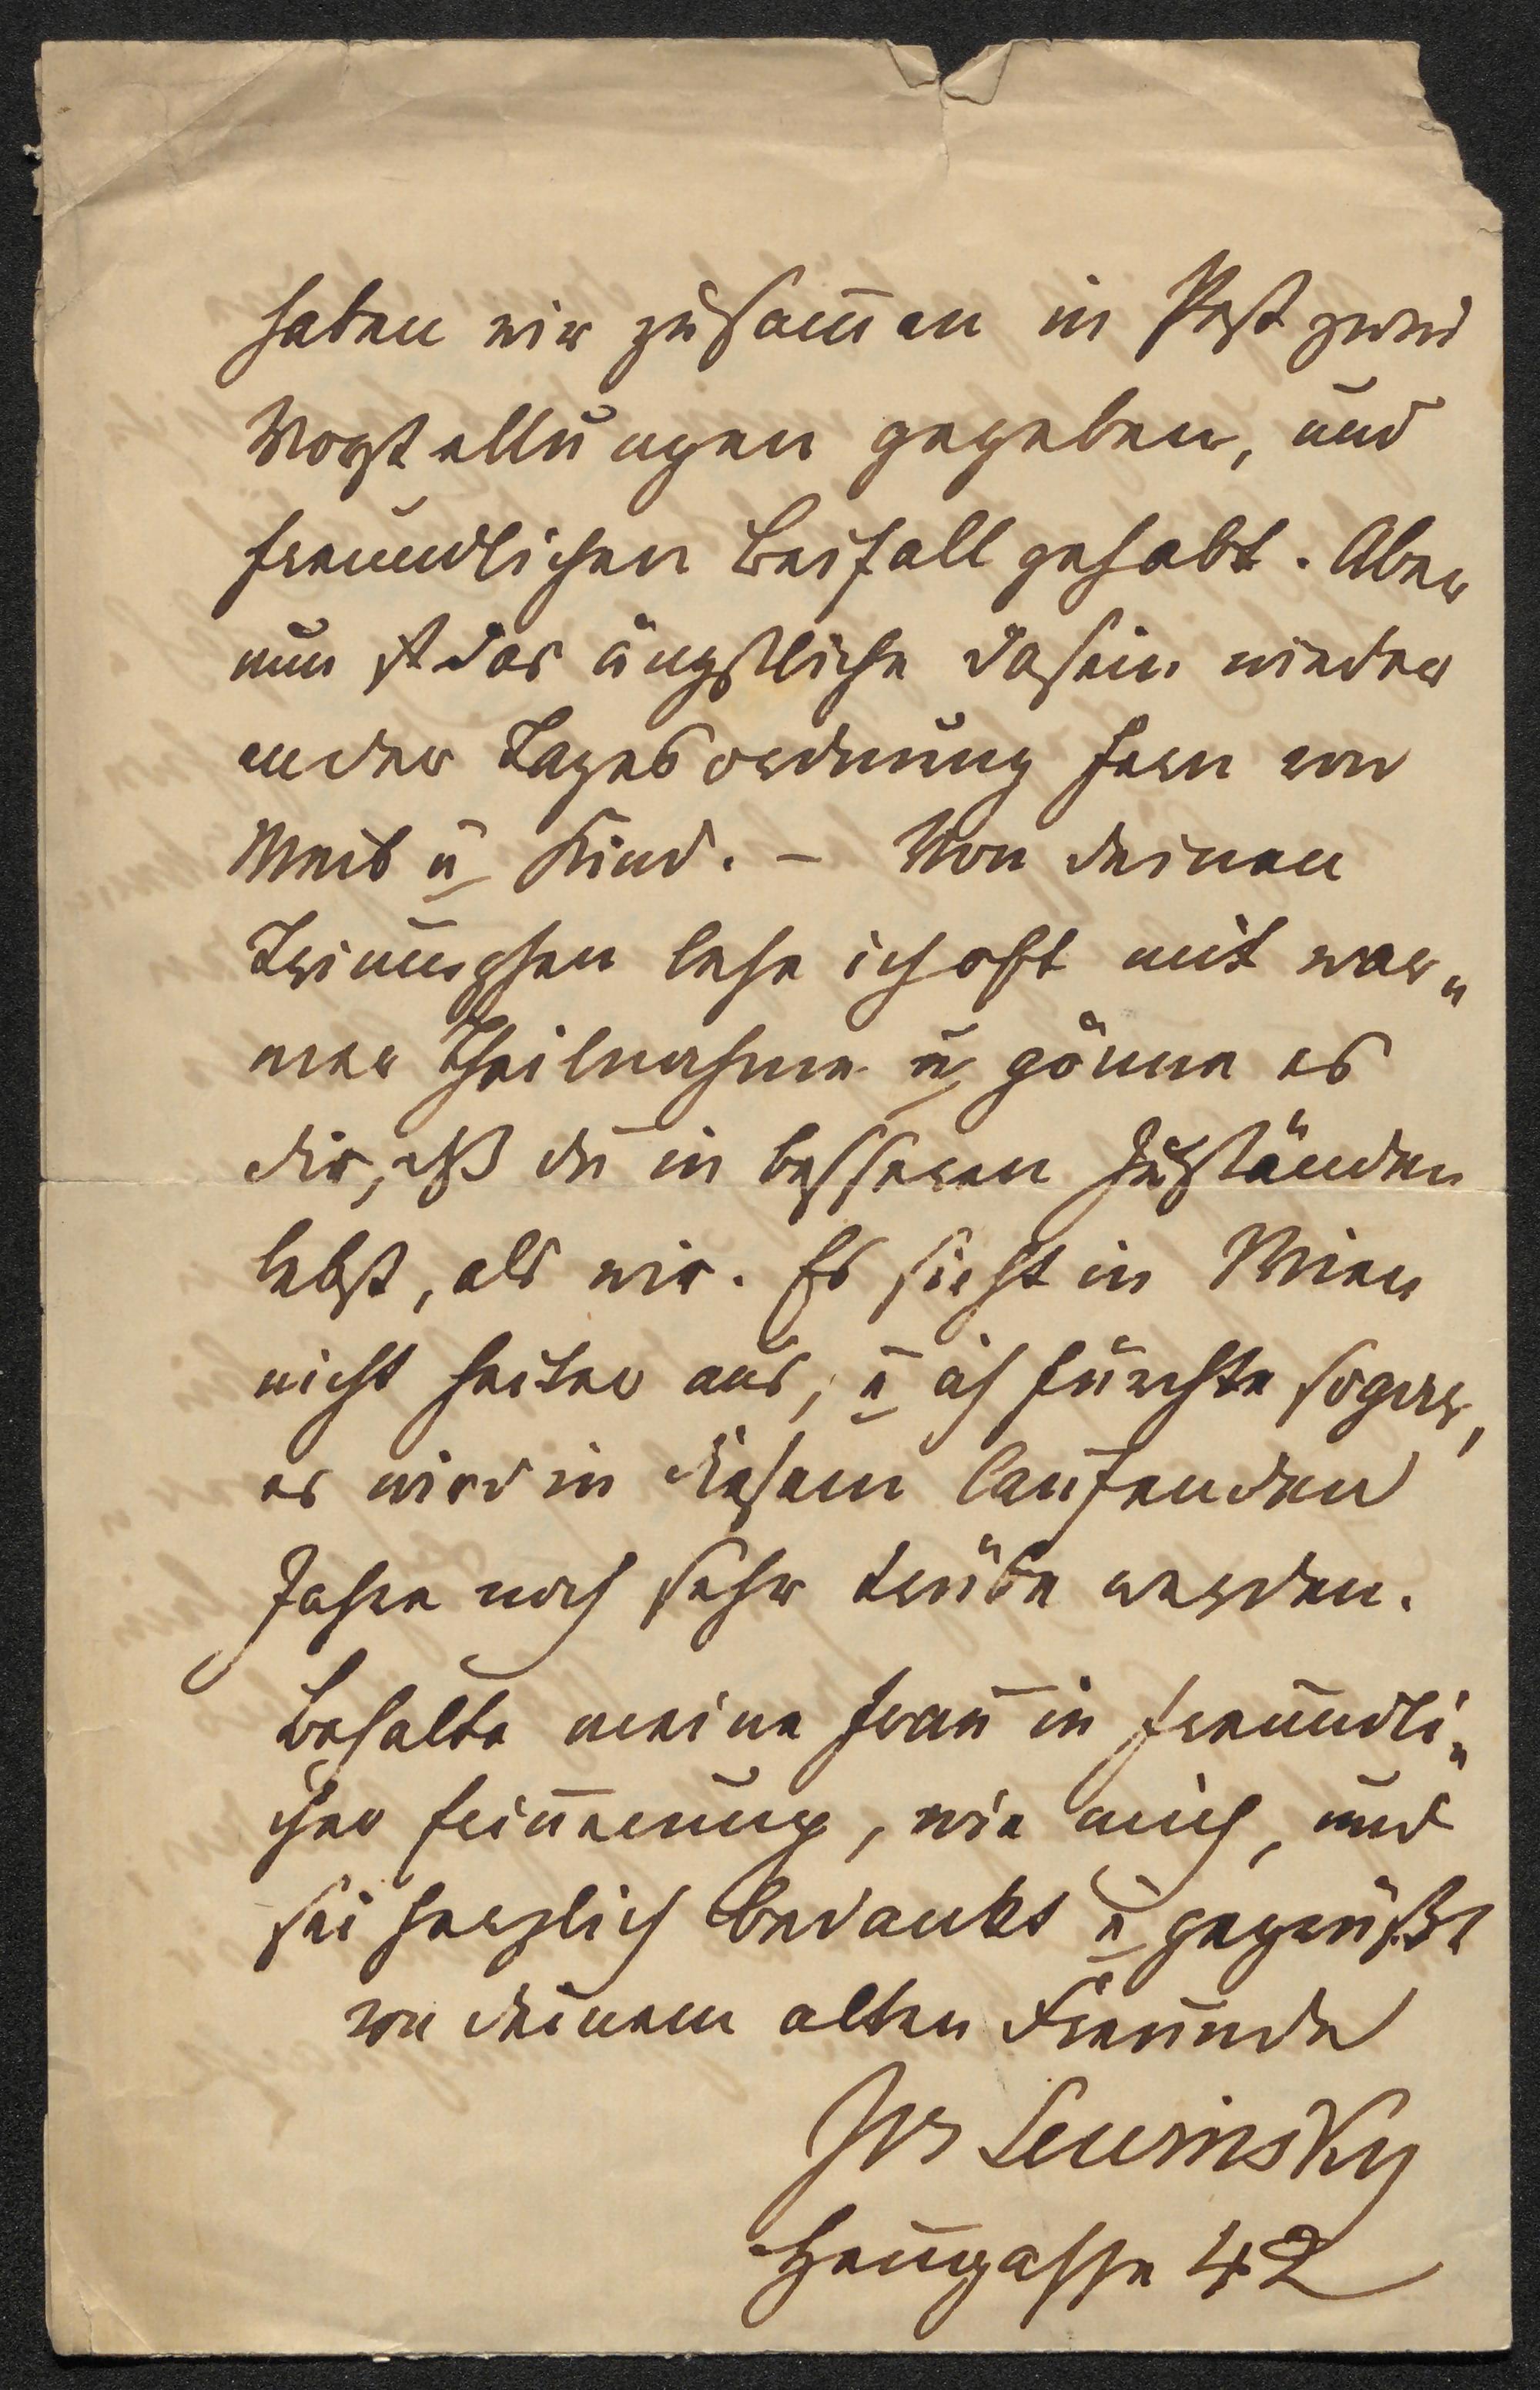 haben wir zusam̅en in Pest zwei
Vorstellungen gegeben, und
freundlichen Beifall gehabt. Aber
nun ist das ängstliche Dasein wieder
an der Tagesordnung fern von
Weib u Kind. – Von deinen
Triumphen lese ich oft mit war„
mer Theilnahme u gönne es
dir, dß du in besseren Zuständen
lebst, als wir. Es sieht in Wien
nicht heiter aus, u ich fürchte sogar,
es wird in diesem laufenden
Jahre noch sehr trübe werden.
Behalte meine Frau in freundli„
cher Erin̅erung, wie mich, und
sei herzlich bedankt u gegrüßt
von deinem alten Freunde
Jos Lewinsky
Heugasse 42